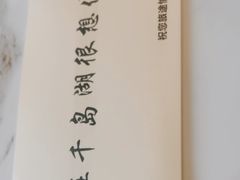 在千岛湖很想
祝您旅途